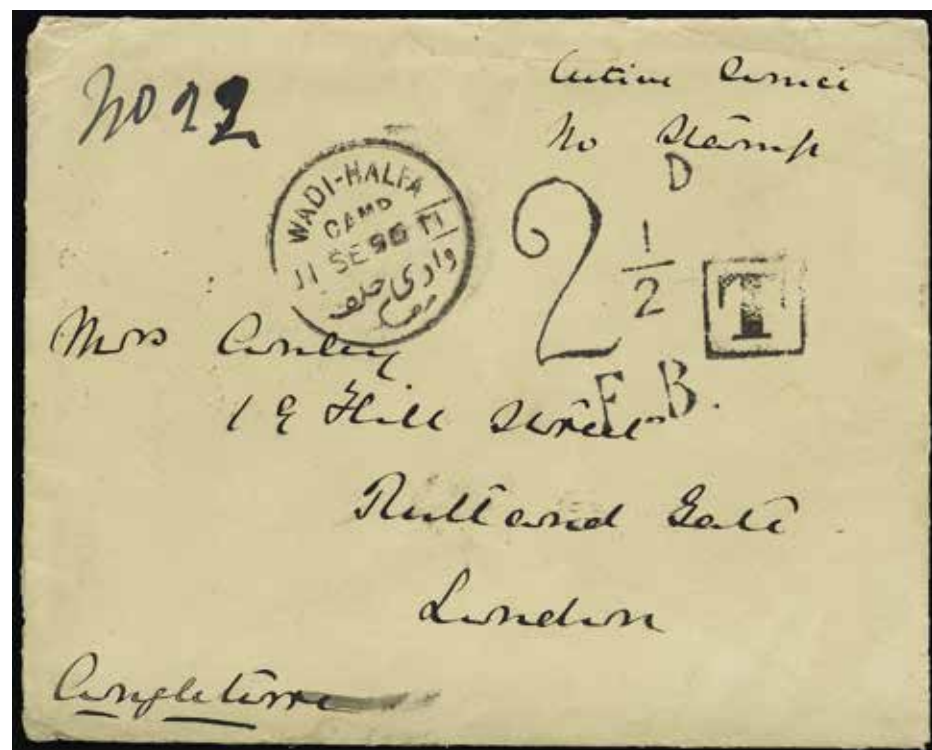 No 22
Active Service
No Stamp
WADI-HALFA
CAMP
11 SE 96 T1
وادى حلفا
2 1/2 D
T
F. B.
Mrs
19 Hill Street
Rutland Gate
London
Angleterre